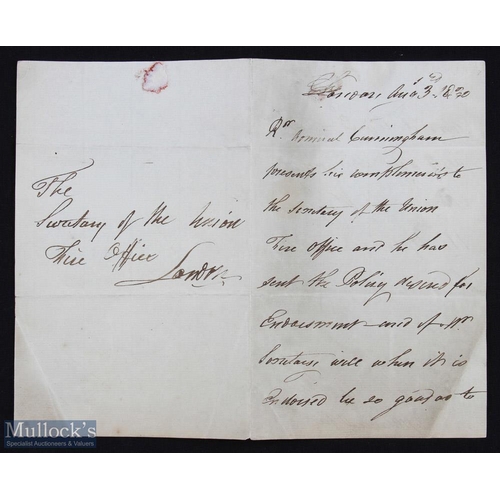 The
Secretary of the Union
Fire Office
London
Augt 3d 1820
Rr Admiral Cunningham
presents his compliments to
the Secretary of the Union
Fire Office and he has
sent the Policy desired for
Endorsment and if Mr
Secretary will when it is
Endorsed be so good as to
Mullock's
Specialist Auctioneers & Valuers